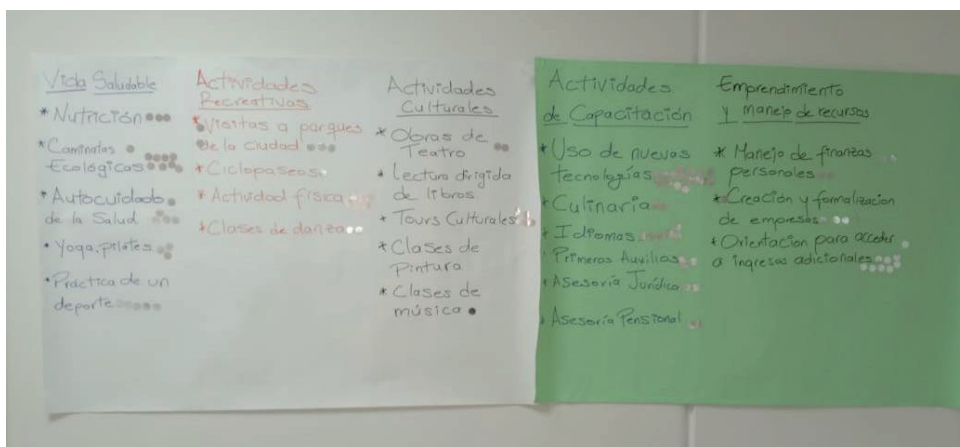 Vida Saludable
* Nutrición
* Caminatas
Ecológicas
* Autocuidado
de la Salud
* Yoga, pilates
* Práctica de un
deporte
Actividades
Recreativas
* Visitas a parques
de la ciudad
* Ciclopaseos
* Actividad física
* Clases de danza
Actividades
Culturales
* Obras de
Teatro
* Lectura dirigida
de libros
* Tours Culturales
* Clases de
Pintura
* Clases de
música
Actividades
de Capacitación
* Uso de nuevas
tecnologías
* Culinaria
* Idiomas
* Primeros Auxilios
* Asesoría Jurídica
* Asesoría Pensional
Emprendimiento
y manejo de recursos
* Manejo de finanzas
personales
* Creación y formalizacion
de empresas
* Orientacion para acceder
a ingresos adicionales